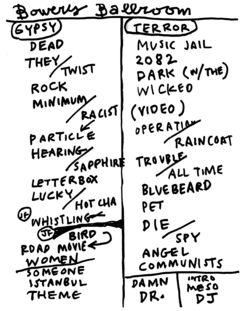 Bowery Ballroom
GYPSY
DEAD
THEY/
TWIST
ROCK
MINIMUM/
RACIST
PARTICLE
HEARING/
SAPPHIRE
LETTERBOX
LUCKY/
HOT CHA
JF WHISTLING
JF BIRD
ROAD MOVIE
WOMEN
SOMEONE
ISTANBUL
THEME
TERROR
MUSIC JAIL
2082
DARK (W/THE)
WICKED
(VIDEO)
OPERATION/
RAINCOAT
TROUBLE/
ALL TIME
BLUEBEARD
PET
DIE/
SPY
ANGEL
COMMUNISTS
DAMN
DR.
INTRO
MESO
DJ